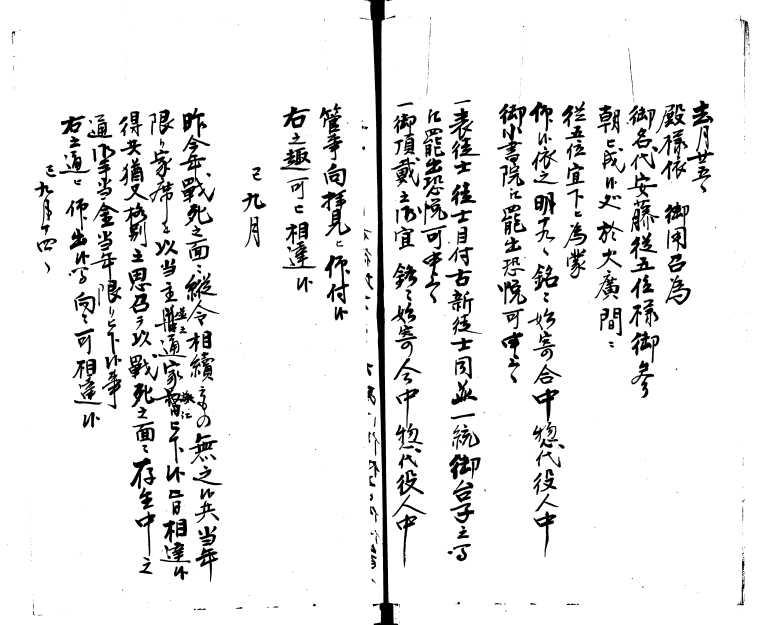 去月廿五日
殿様依 御用召為
御名代安藤従五位様御参
朝ニ成候処於大廣間ニ
従五位宜下ニ為蒙
仰候依之明十九日銘々始寄合中惣代役人中
御小書院江罷出恐悦可申上事
一表徒士徒士目付古新徒士同並一統御台子之間
江罷出恐悦可申上事
一御頂戴之御宜 銘々始寄合中惣代役人中
管事向拝見ニ仰付候
右之趣可ニ相達候
巳九月
昨今年戦死之面々縦令相續之もの無之候共当年
限り家席を以当主並之通家督被下候旨相達候
得共猶又格別之思召ヲ以戦死之面々存生中之
通御手当金当年限り被下候事
右之通ニ仰出候間向々可相達候
巳九月十四日